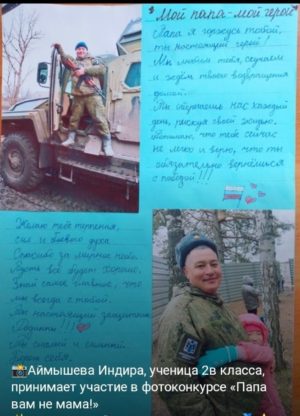 Мой папа - мой герой
Папа я горжусь тобой,
ты настоящий герой!
Мы любим тебя, скучаем
и ждём твоего возвращения
домой.
Ты защищаешь нас каждый
день, рискуя своей жизнью.
Понимаю, что тебе сейчас
не легко и верю, что ты
обязательно вернёшься
с победой!!!
Желаю тебе терпения,
сил и боевого духа.
Спасибо за мирное небо.
Пусть всё будет хорошо.
Знай самое главное, что
мы всегда с тобой.
Ты настоящий защитник
Родины!!!
Ты смелый и сильный
Береги себя.
📸Аймышева Индира, ученица 2в класса,
принимает участие в фотоконкурсе «Папа
вам не мама!»